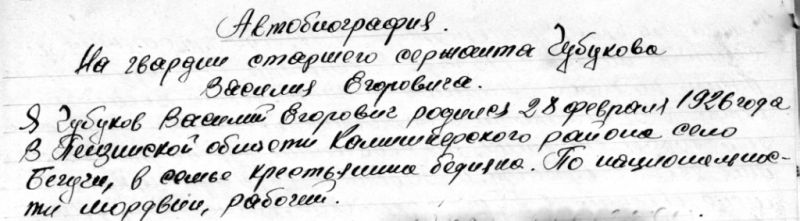 Автобиография.
На гвардии старшего сержанта Чубукова
Василия Егоровича.
Я Чубуков Василий Егорович родился 28 февраля 1926 года
в Пензинской области Камишкерского района село
Бегучи, в семье крестьянина бедняка. По националнос-
ти мордвин, рабочий.